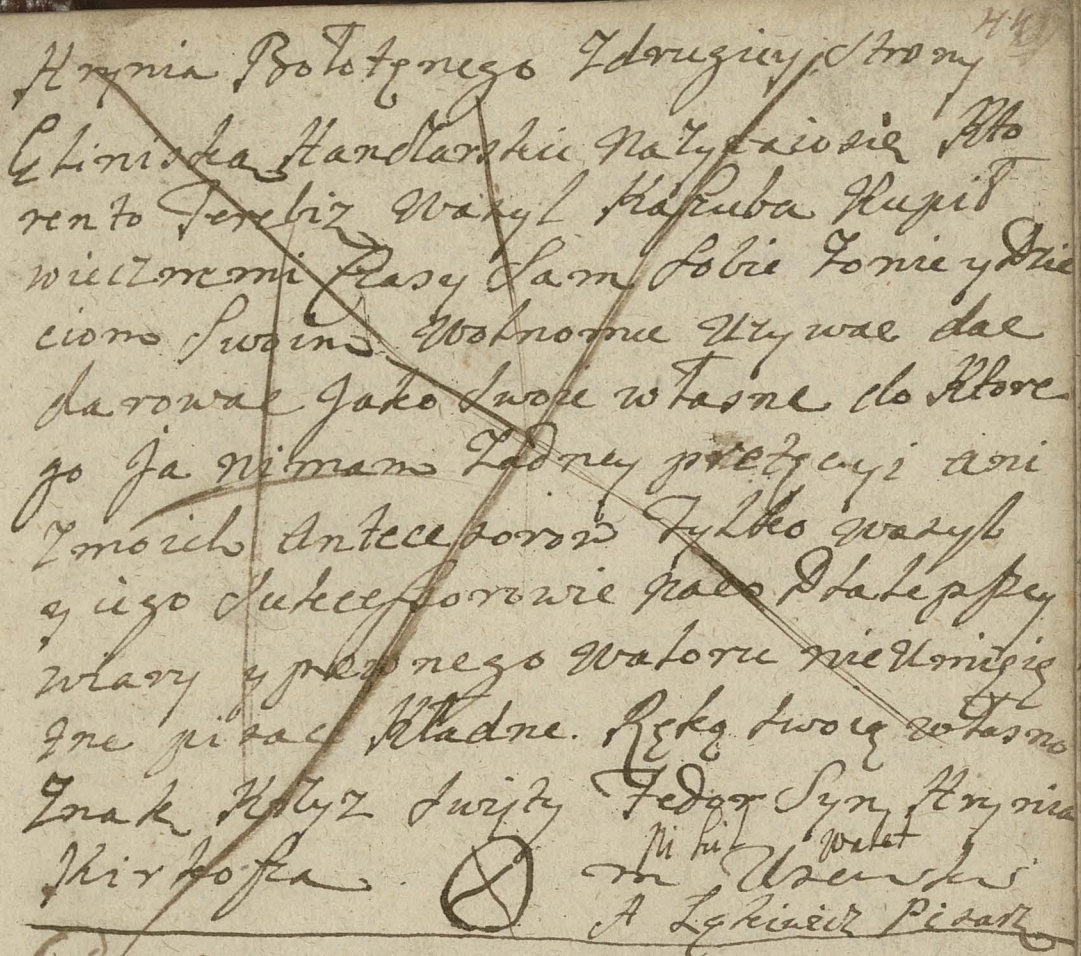 Hrynia Bołotęnego Zdrugiey Strony
Gliniska Handlarskie Nazywaiosię Kto
rento Terebiz Wasyl Kaszuba Kupił
wiecznemi czasy Sam Sobie Zonie y Dzie
ciom Swoim Wolnomu Uzywac dac
darowac Jako Swoie własne do Ktore
go Ja nimam Zadney pretęcyi ani
Zmoich Antecesorow Tylko Wasyl
y iego Sukcessorowie naco Dlalepszey
wiary y pewnego waloru nie Umieię
pisac Kładne. Ręką Swoię własno
Znak Krzyz Swięty Fedor Syn Hrynia
Kirkoszka
A Pisarz